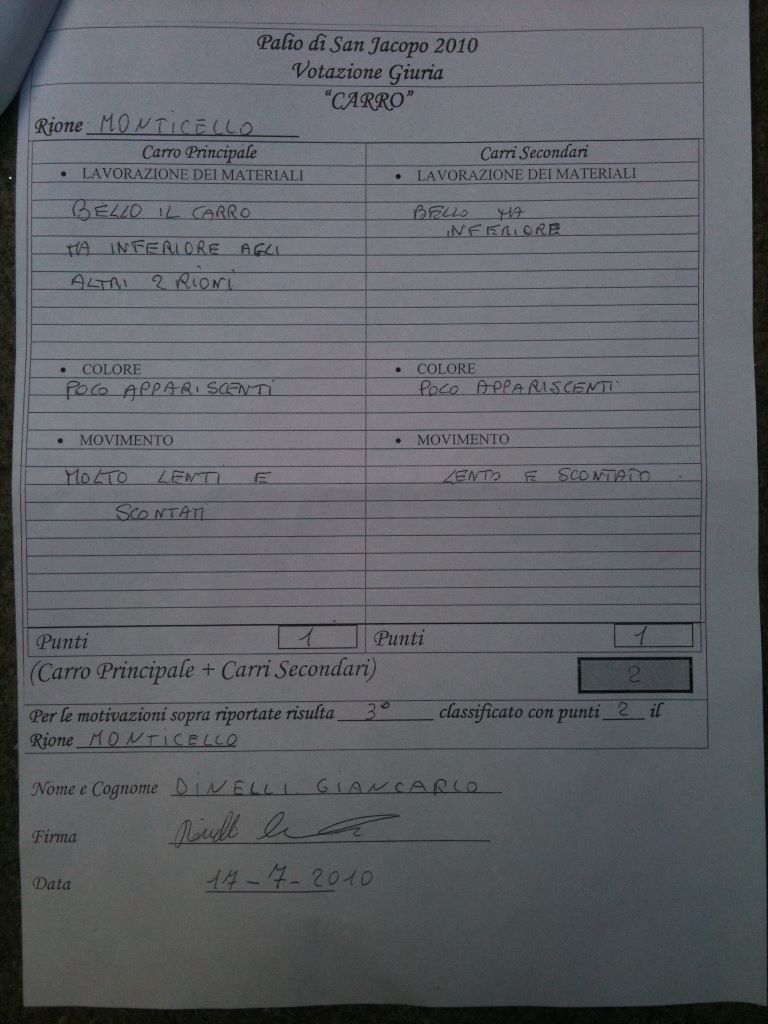 Palio di San Jacopo 2010
Votazione Giuria
"CARRO"
Rione MONTICELLO
Carro Principale
• LAVORAZIONE DEI MATERIALI
BELLO IL CARRO
MA INFERIORE AGLI
ALTRI 2 RIONI
• COLORE
POCO APPARISCENTI
• MOVIMENTO
MOLTO LENTI E
SCONTATI
Punti 1
Carri Secondari
• LAVORAZIONE DEI MATERIALI
BELLO MA
INFERIORE
• COLORE
POCO APPARISCENTI
• MOVIMENTO
LENTO E SCONTATO.
Punti 1
(Carro Principale + Carri Secondari) 2
Per le motivazioni sopra riportate risulta 3° classificato con punti 2 il
Rione MONTICELLO
Nome e Cognome DINELLI GIANCARLO
Firma
Data 17-7-2010